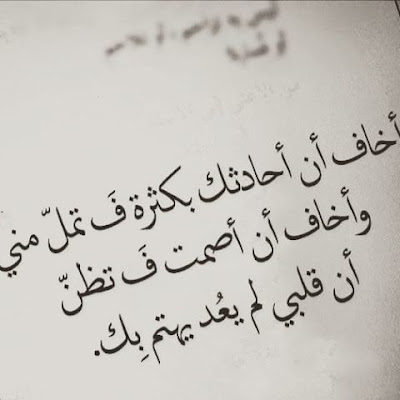 أخاف أن أحادثك بكثرة فَ تملّ مني
وأخاف أن أصمت فَ تظنّ
أن قلبي لم يعُد يهتم بِك.